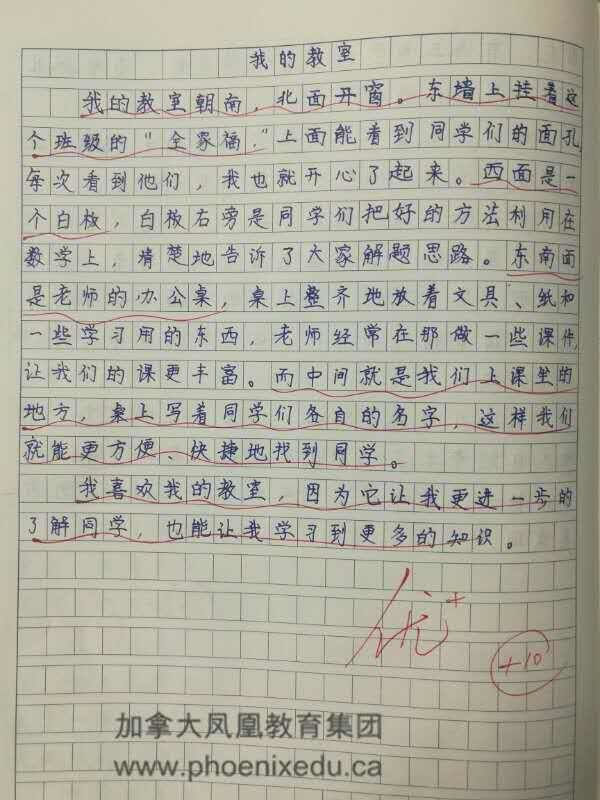 我的教室
我的教室朝南，北面开窗。东墙上挂着这
个班级的“全家福，”上面能看到同学们的面孔
每次看到他们，我也就开心了起来。西面是一
个白板，白板右旁是同学们把好的方法利用在
数学上，清楚地告诉了大家解题思路。东南面
是老师的办公桌，桌上整齐地放着文具、纸和
一些学习用的东西，老师经常在那做一些课件，
让我们的课更丰富。而中间就是我们上课坐的
地方，桌上写着同学们各自的名字，这样我们
就能更方便、快捷地找到同学。
我喜欢我的教室，因为它让我更进一步的
了解同学，也能让我学习到更多的知识。
优+
+10
加拿大凤凰教育集团
www.phoenixedu.ca